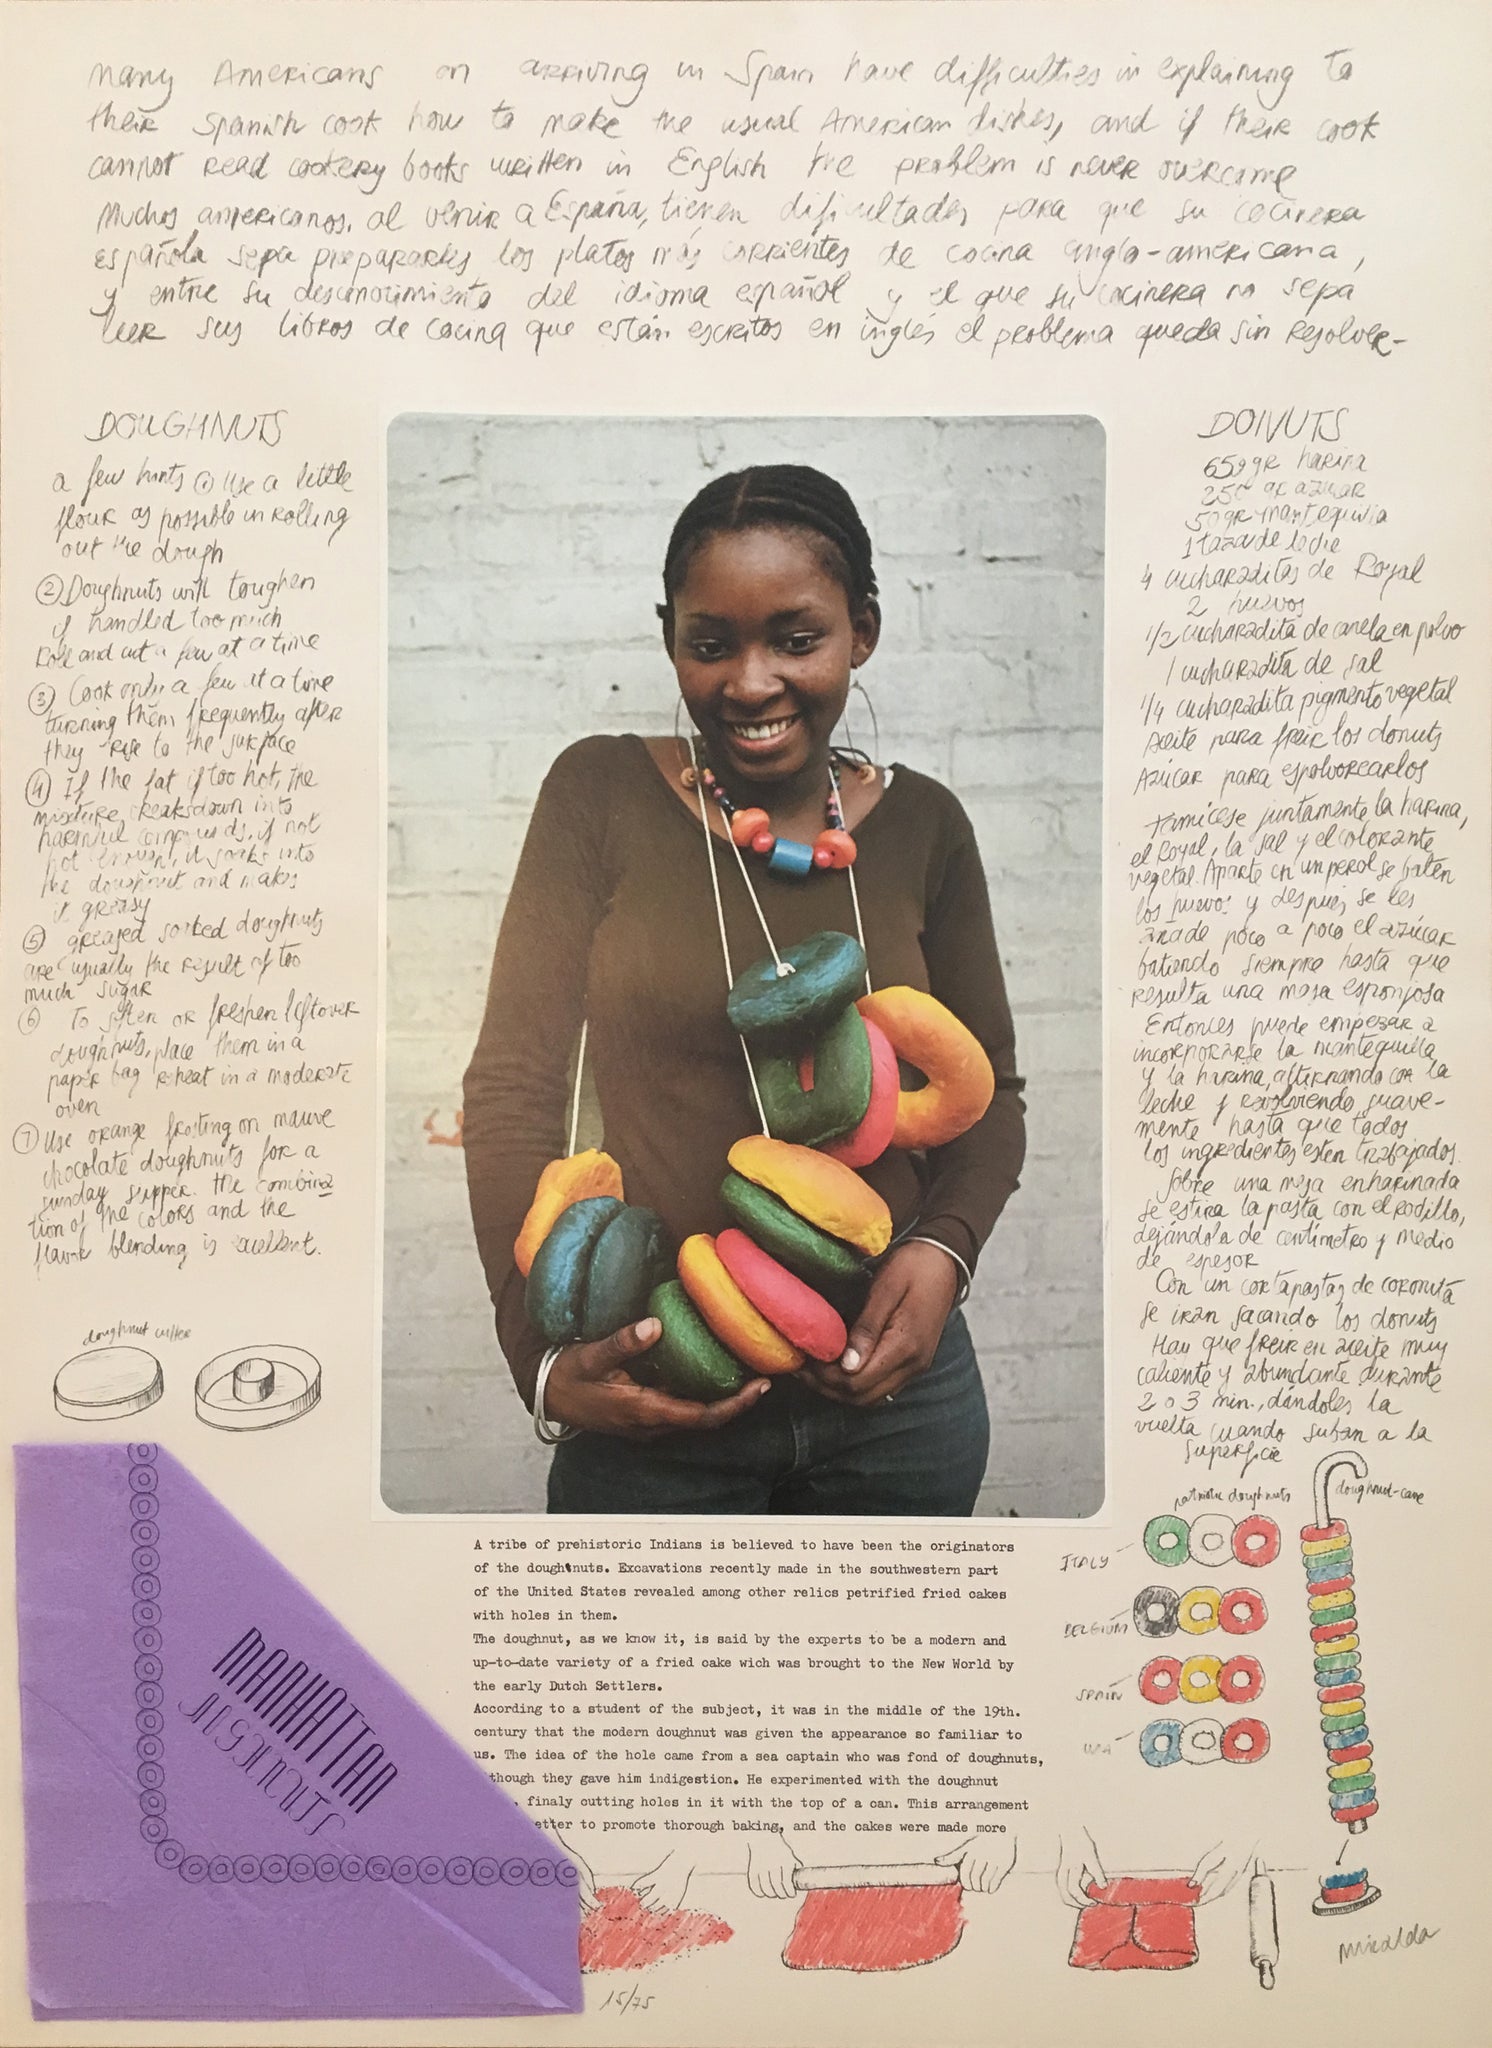 many Americans on arriving in Spain have difficulties in explaining to
their Spanish cook how to make the usual American dishes, and if their cook
cannot read cookery books written in English the problem is never overcome
Muchos americanos, al venir a España, tienen dificultades para que su cocinera
española sepa prepararles los platos más corrientes de cocina anglo-americana,
y entre su desconocimiento del idioma español y el que su cocinera no sepa
leer sus libros de cocina que están escritos en inglés el problema queda sin resolver-
DOUGHNUTS
a few hints ① Use a little
flour as possible in rolling
out the dough
② Doughnuts will toughen
if handled too much
Roll and cut a few at a time
③ Cook only a few at a time
turning them frequently after
they rise to the surface
④ If the fat if too hot, the
mixture breaksdown into
harmful compounds, if not
hot enough, it soaks into
the doughnut and makes
it greasy
⑤ greased soaked doughnuts
are usually the result of too
much sugar
⑥ To soften or freshen leftover
doughnuts, place them in a
paper bag reheat in a moderate
oven
⑦ Use orange frosting on mauve
chocolate doughnuts for a
sunday supper. the combina
tion of the colors and the
flavor blending is excellent.
doughnut cutter
MANHATTAN
DOUGHNUTS
DONUTS
650 gr harina
250 gr azucar
50 gr mantequilla
1 taza de leche
4 cucharaditas de Royal
2 huevos
1/2 cucharadita de canela en polvo
1 cucharadita de sal
1/4 cucharadita pigmento vegetal
Aceite para freir los donuts
Azúcar para espolvorearlos
Tamicese juntamente la harina,
el Royal, la sal y el colorante
vegetal. Aparte en un perol se baten
los huevos y despues se les
añade poco a poco el azúcar
batiendo siempre hasta que
resulta una masa esponjosa
Entonces puede empezar a
incorporarse la mantequilla
y la harina, alternando con la
leche y revolviendo suave-
mente hasta que todos
los ingredientes esten trabajados.
Sobre una mesa enharinada
se estira la pasta con el rodillo,
dejándola de centímetro y medio
de espesor
Con un cortapastas de coronita
se iran sacando los donuts
Hay que freir en aceite muy
caliente y abundante durante
2 o 3 min., dándoles la
vuelta cuando suban a la
superficie
patriotic doughnuts
doughnut-cane
ITALY
BELGIUM
SPAIN
USA
A tribe of prehistoric Indians is believed to have been the originators
of the doughtnuts. Excavations recently made in the southwestern part
of the United States revealed among other relics petrified fried cakes
with holes in them.
The doughnut, as we know it, is said by the experts to be a modern and
up-to-date variety of a fried cake wich was brought to the New World by
the early Dutch Settlers.
According to a student of the subject, it was in the middle of the 19th.
century that the modern doughnut was given the appearance so familiar to
us. The idea of the hole came from a sea captain who was fond of doughnuts,
though they gave him indigestion. He experimented with the doughnut
, finaly cutting holes in it with the top of a can. This arrangement
etter to promote thorough baking, and the cakes were made more
15/75
Miralda